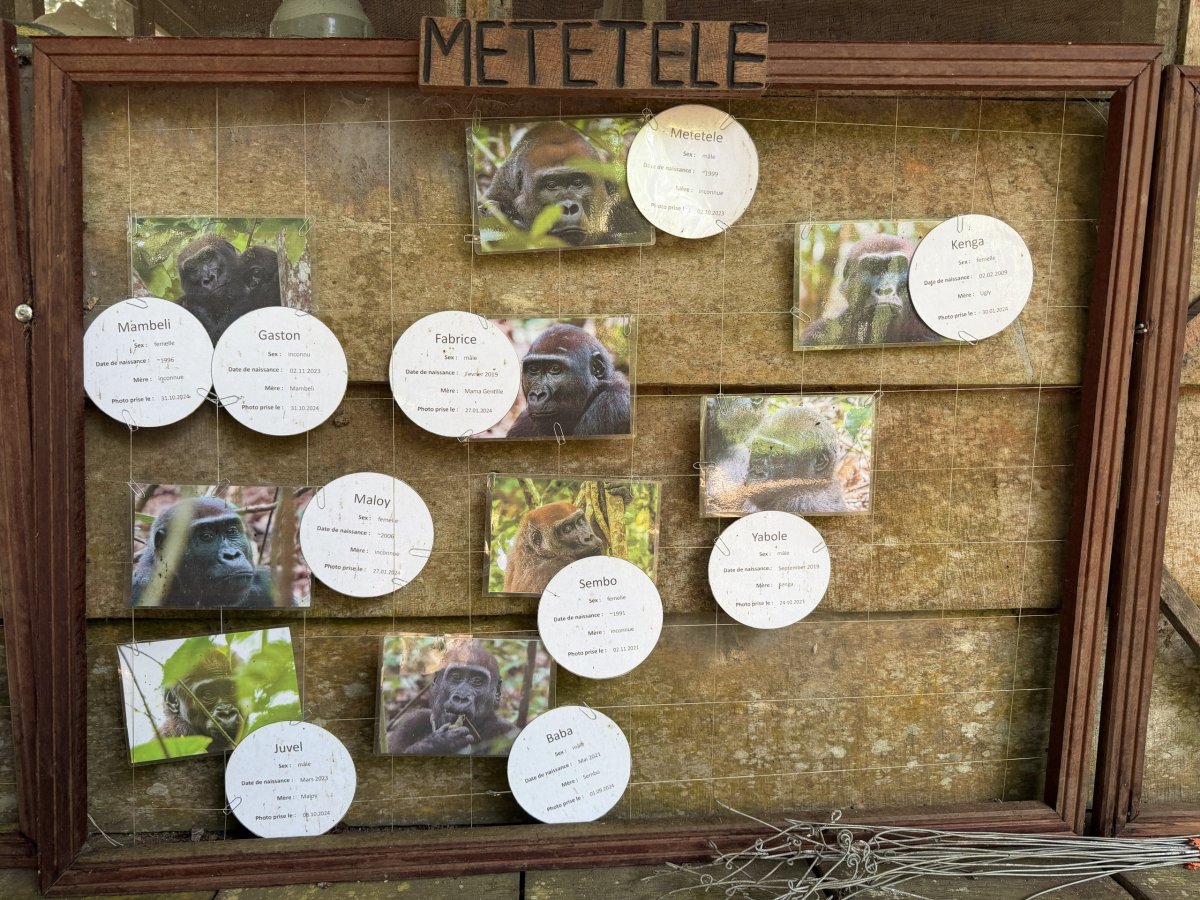 METETELE
Metetele
Sex : mâle
Date de naissance : ~1999
Mère : inconnue
Photo prise le : 02.10.2023
Kenga
Sex : femelle
Date de naissance : 02.02.2009
Mère : Ugly
Photo prise le : 30.01.2024
Mambeli
Sex : femelle
Date de naissance : ~1996
Mère : inconnue
Photo prise le : 31.10.2024
Gaston
Sex : inconnu
Date de naissance : 02.11.2023
Mère : Mambeli
Photo prise le : 31.10.2024
Fabrice
Sex : mâle
Date de naissance : Fevrier 2019
Mère : Mama Gentille
Photo prise le : 27.01.2024
Maloy
Sex : femelle
Date de naissance : ~2006
Mère : inconnue
Photo prise le : 27.01.2024
Sembo
Sex : femelle
Date de naissance : ~1991
Mère : inconnue
Photo prise le : 02.11.2021
Yabole
Sex : mâle
Date de naissance : September 2019
Mère : Kenga
Photo prise le : 24.10.2021
Juvel
Sex : mâle
Date de naissance : Mars 2023
Mère : Maloy
Photo prise le : 08.10.2024
Baba
Sex : mâle
Date de naissance : Mai 2021
Mère : Sembo
Photo prise le : 01.09.2024